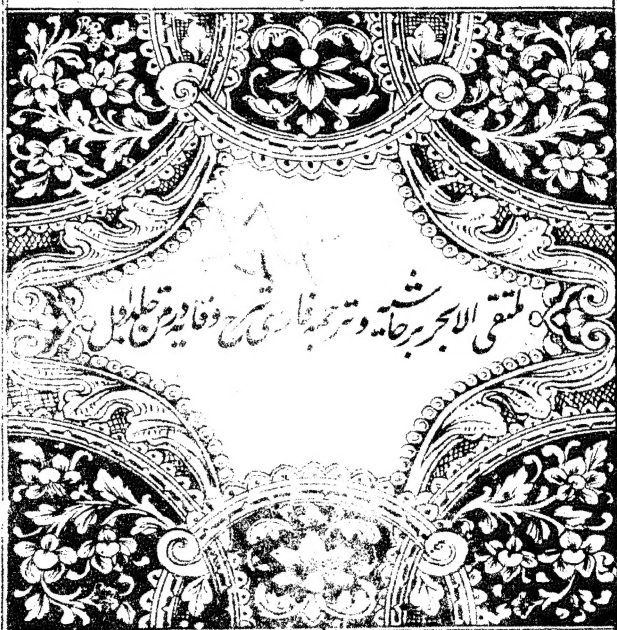 ملتقی الابحر بر حاشیه و ترجمه فارسی شرح وقایه در متن جلد اول